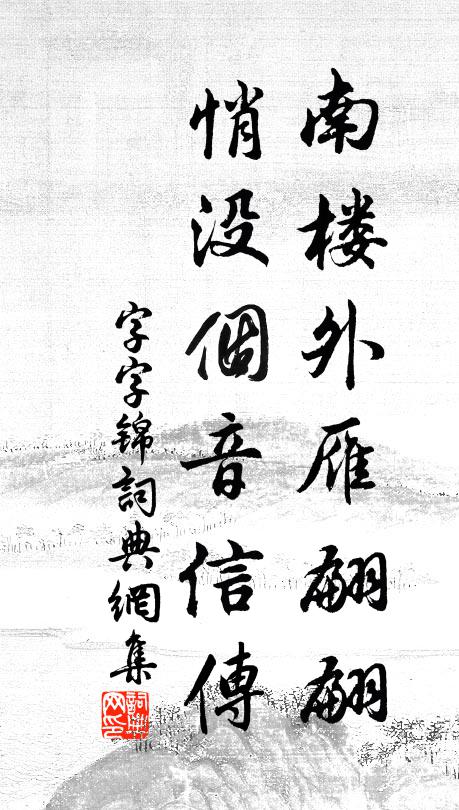 南楼外雁翩翩
悄没個音信傳
字字錦詞典網集